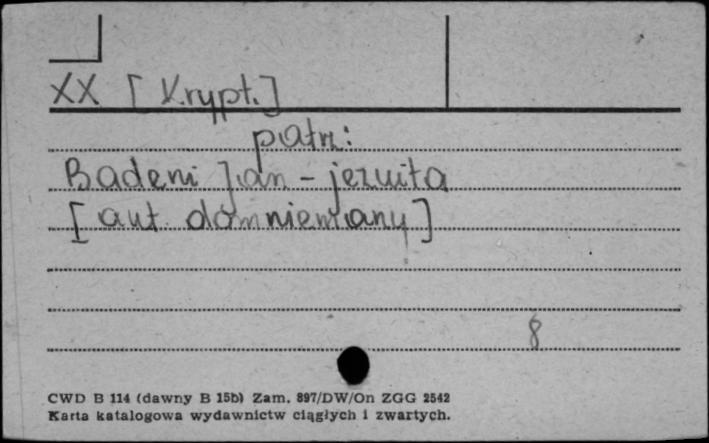 XX [Krypt.]
patrz:
Badeni Jan - jezuita
[aut. domniemany]
8
CWD B 114 (dawny B 15b) Zam. 897/DW/On ZGG 2542
Karta katalogowa wydawnictw ciągłych i zwartych.